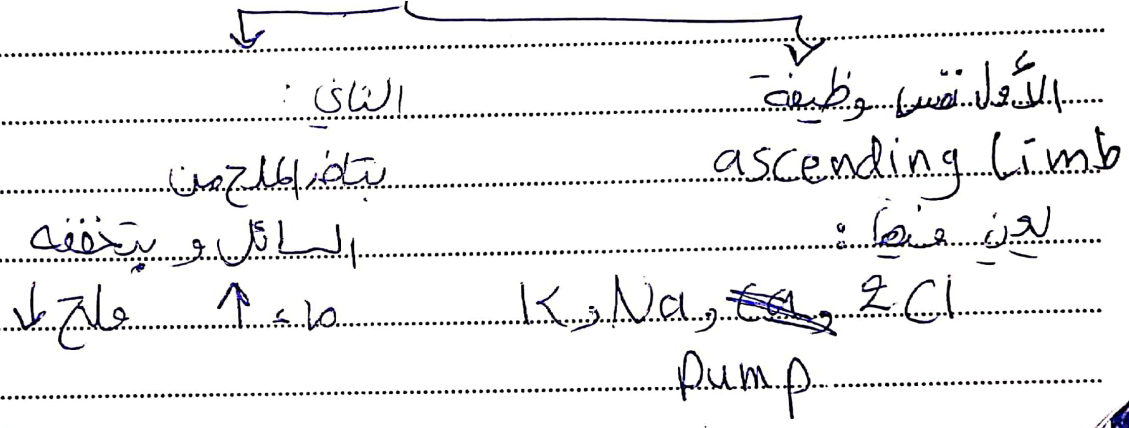 الأول نفس وظيفة
ascending limb
لكن فيها :
K, Na, 2Cl
pump
الثاني :
بتاخد الملح من
السائل و بتخففه
ماء ↑ ملح ↓